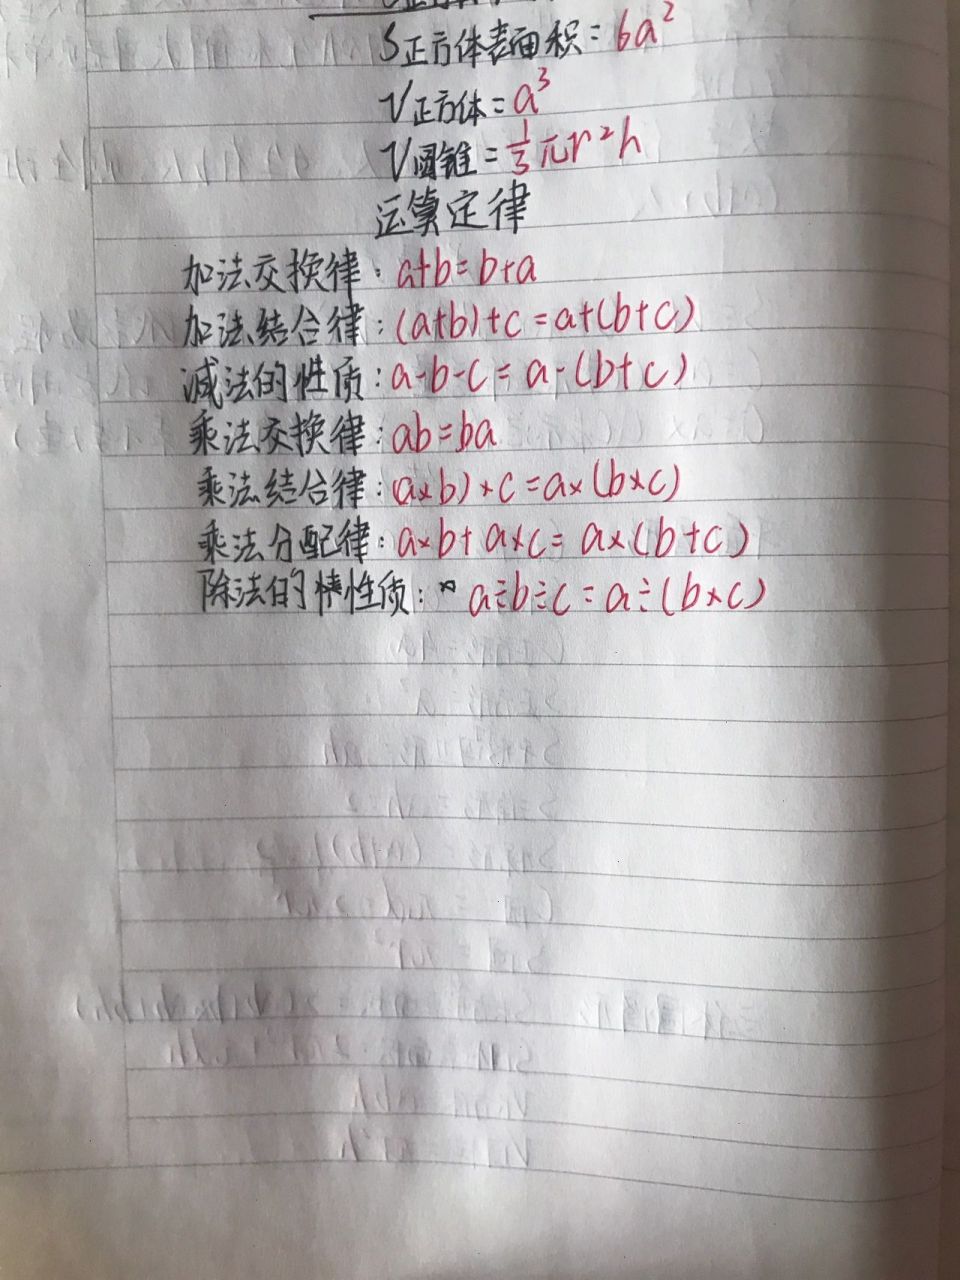 S正方体表面积=6a²
V正方体=a³
V圆锥=⅓πr²h
运算定律
加法交换律:a+b=b+a
加法结合律:(a+b)+c=a+(b+c)
减法的性质:a-b-c=a-(b+c)
乘法交换律:ab=ba
乘法结合律:(a×b)×c=a×(b×c)
乘法分配律:a×b+a×c=a×(b+c)
除法的性质:a÷b÷c=a÷(b×c)